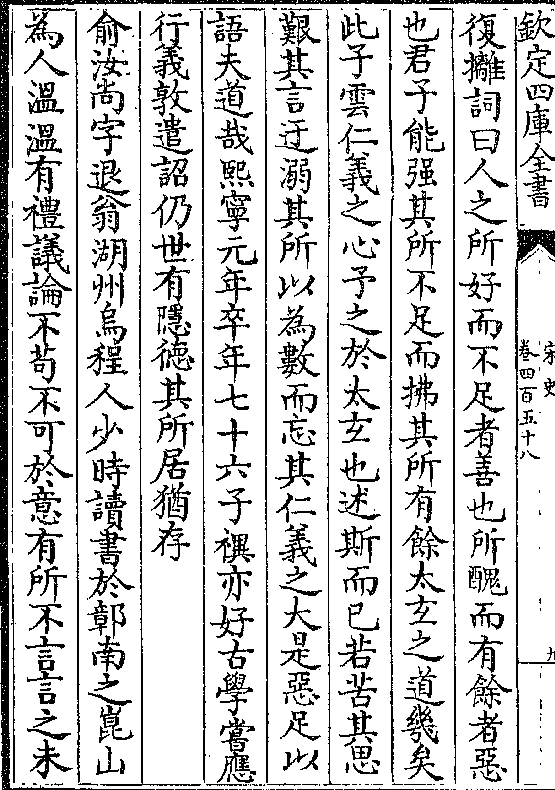 欽定四庫全書
宋史
卷四百五十八
九
復攡詞曰人之所好而不足者善也所醜而有餘者惡
也君子能强其所不足而拂其所有餘太𤣥之道幾矣
此子雲仁義之心予之於太𤣥也述斯而已若苦其思
艱其言迂溺其所以為數而忘其仁義之大是惡足以
語夫道哉熙寧元年卒年七十六子禩亦好古學嘗應
行義敦遣詔仍世有隱德其所居猶存
俞汝尚字退翁湖州烏程人少時讀書於鄣南之崑山
為人溫溫有禮議論不苟不可於意有所不言言之未